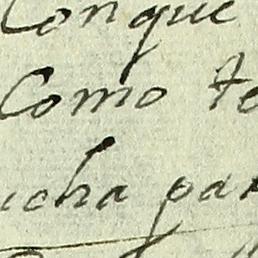 Conque
Como te
icha par